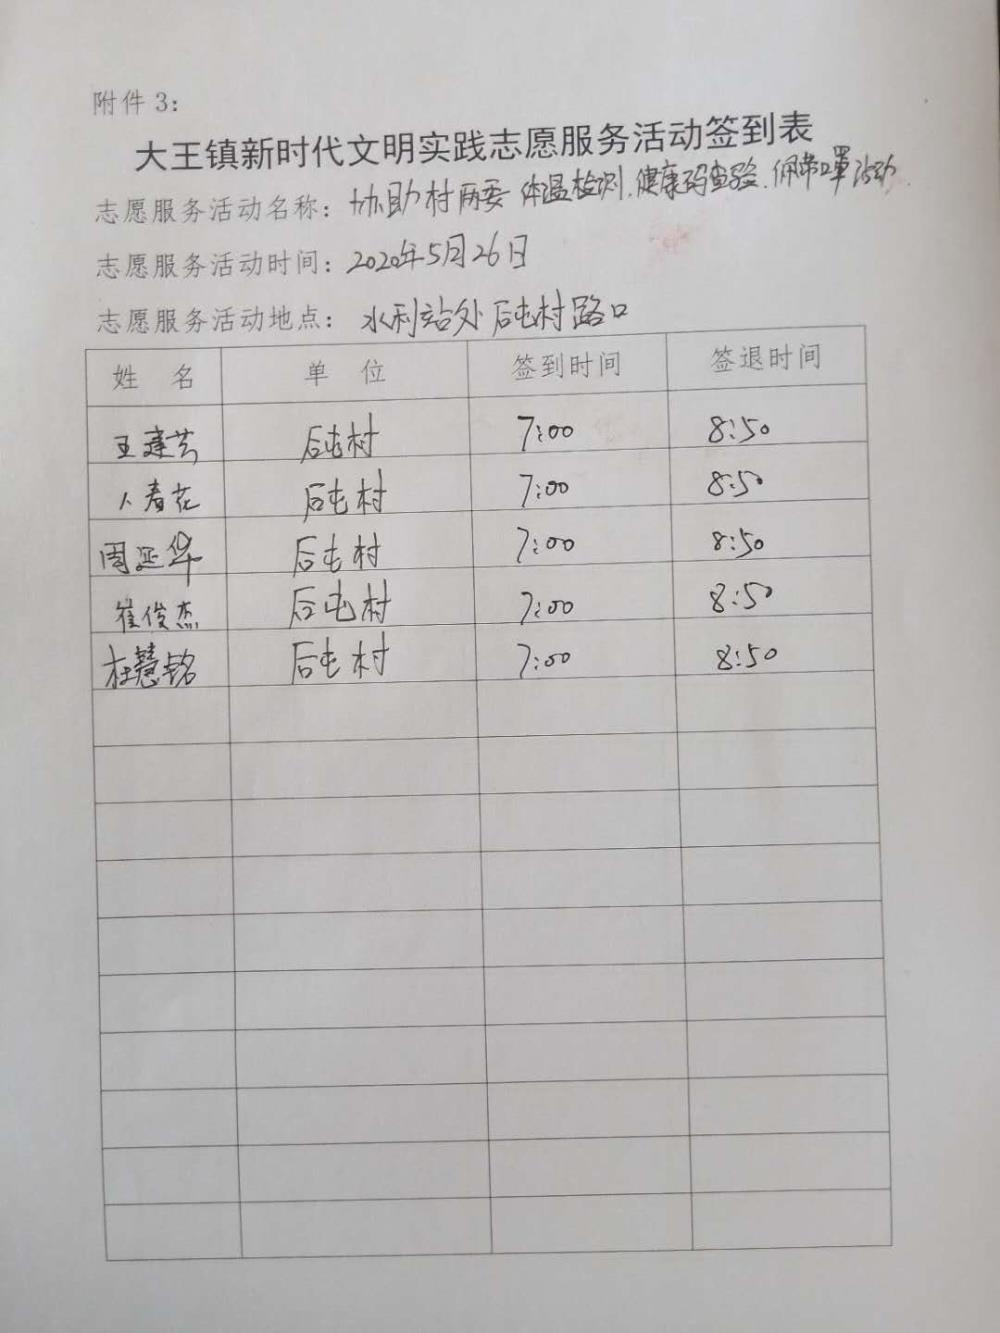 附件 3：
大王镇新时代文明实践志愿服务活动签到表
志愿服务活动名称：协助村两委 体温检测、健康码查验、佩带口罩活动.
志愿服务活动时间：2020年5月26日
志愿服务活动地点：水利站处 后屯村路口
姓 名 单 位 签到时间 签退时间
王建芸 后屯村 7:00 8:50
春花 后屯村 7:00 8:50
周延华 后屯村 7:00 8:50
崔俊杰 后屯村 7:00 8:50
杜慧铭 后屯村 7:00 8:50